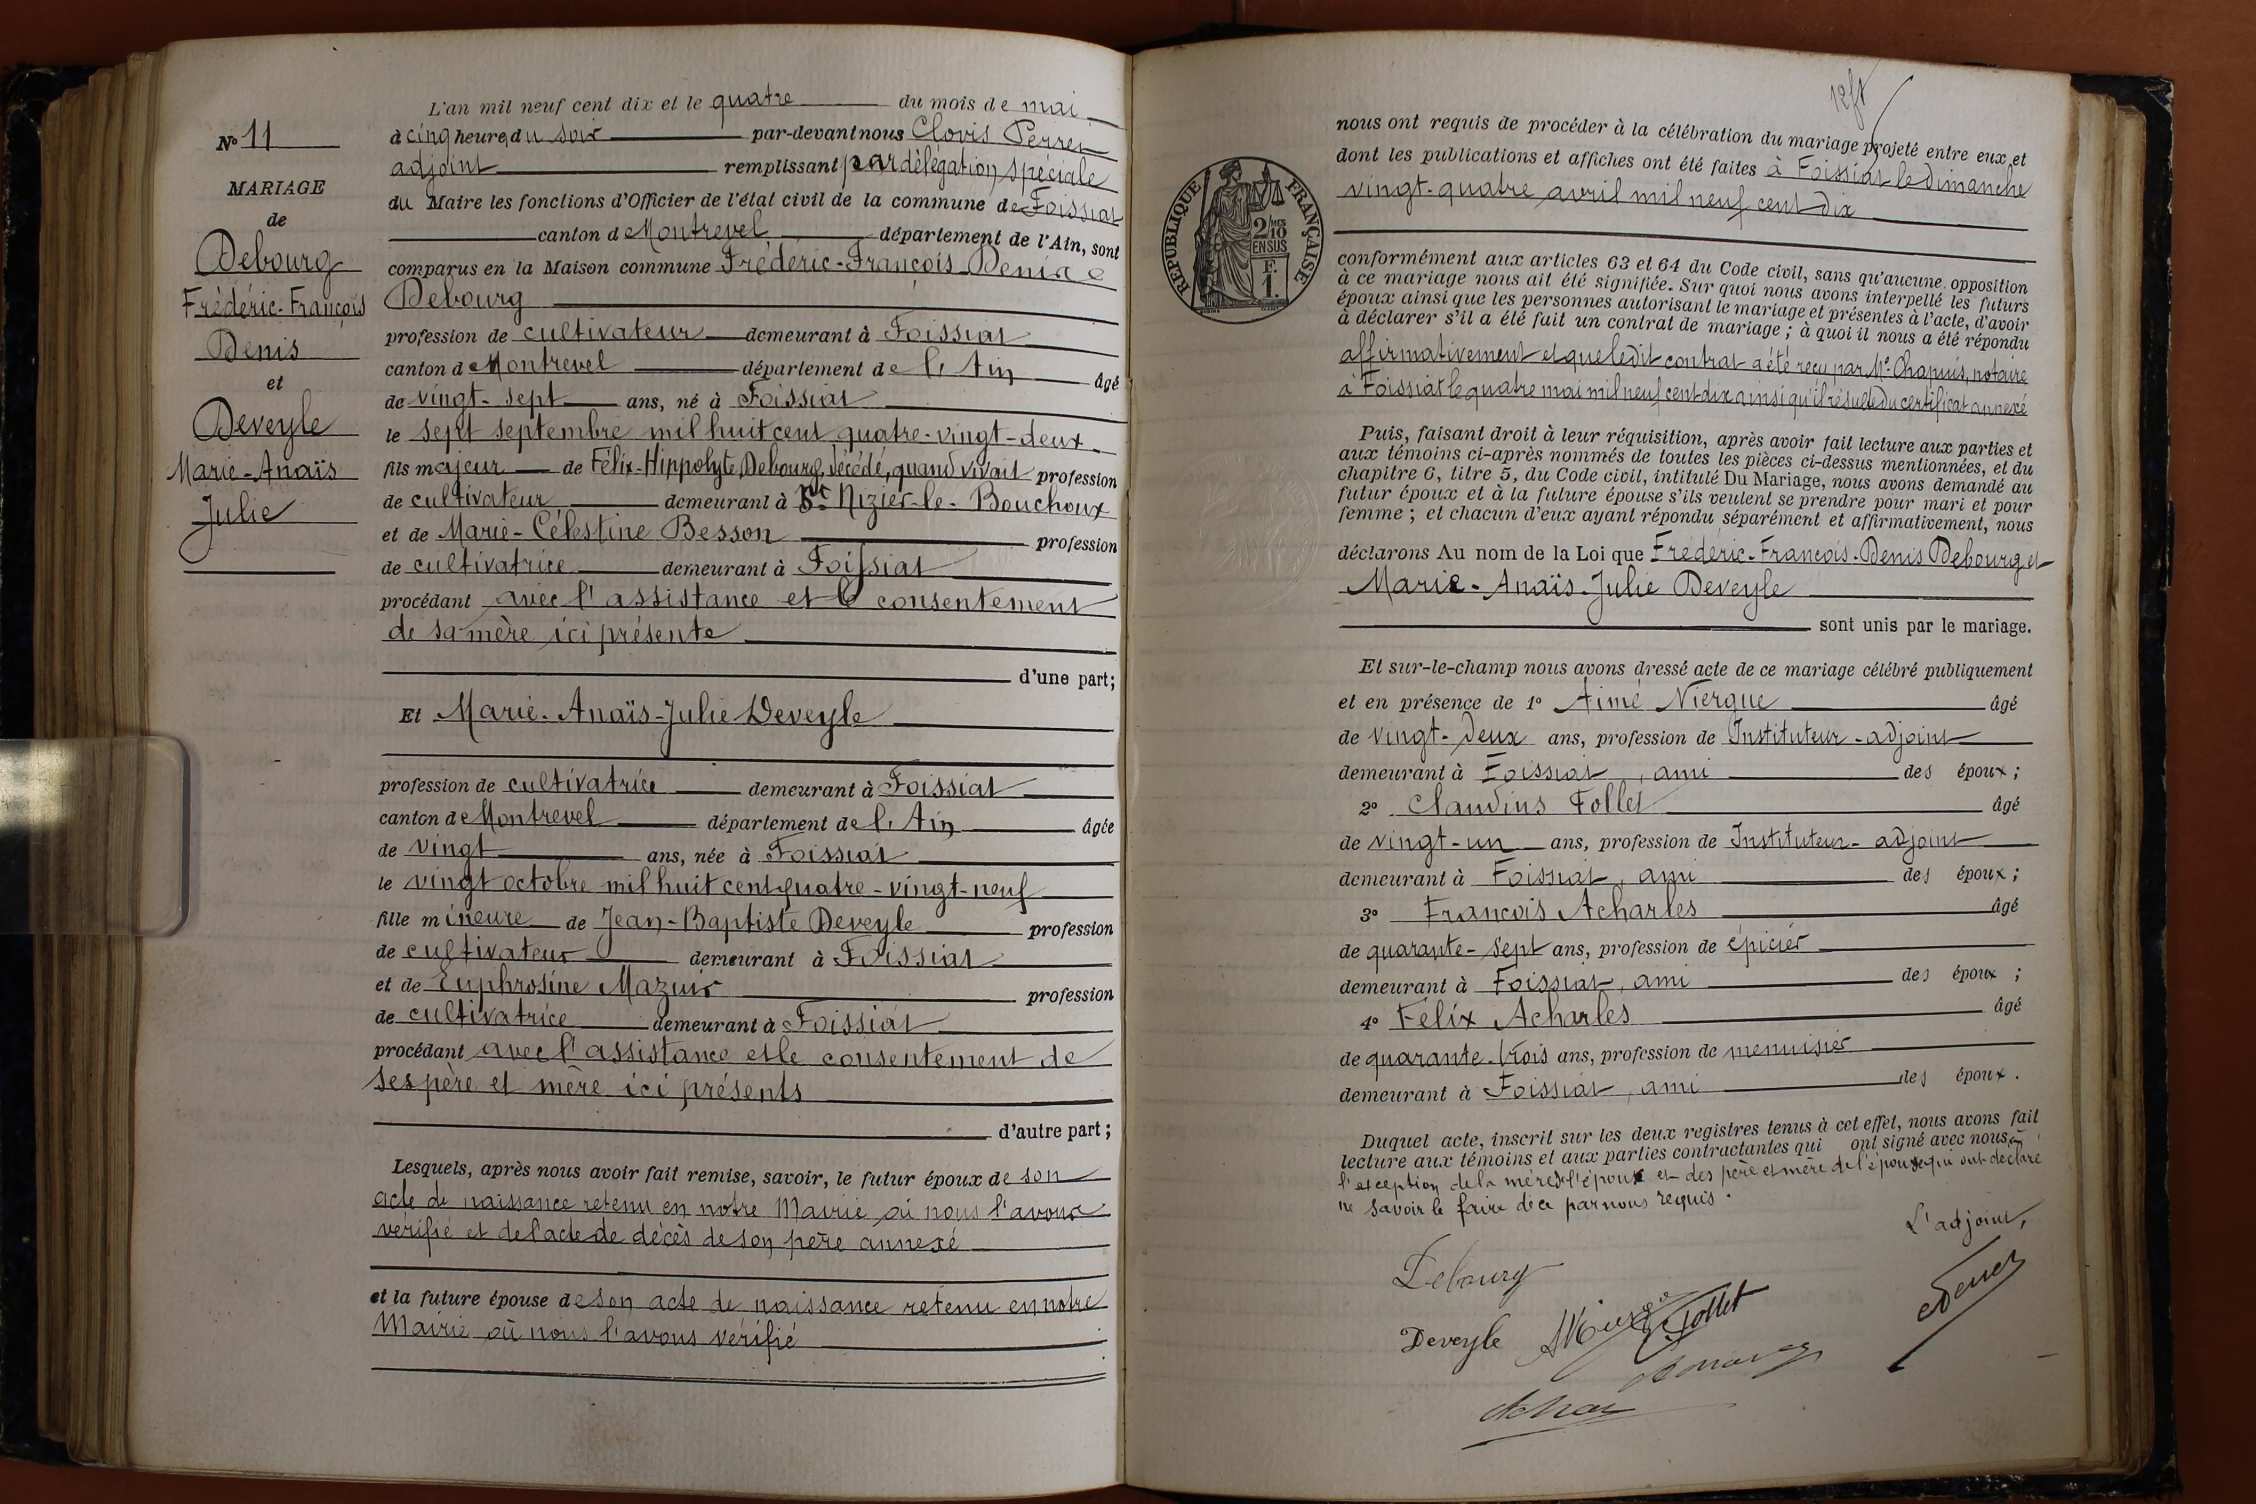 N° 11
MARIAGE
de
Debourg
Frédéric-François
Denis
et
Deveyle
Marie-Anaïs
Julie
L'an mil neuf cent dix et le quatre du mois de mai
à cinq heures du soir par-devant nous Clovis Perret
adjoint remplissant par délégation spéciale
du Maire les fonctions d'Officier de l'état civil de la commune de Foissiat
canton de Montrevel département de l'Ain, sont
comparus en la Maison commune Frédéric-François Denis
Debourg
profession de cultivateur demeurant à Foissiat
canton de Montrevel département de l'Ain âgé
de vingt-sept ans, né à Foissiat
le sept septembre mil huit cent quatre-vingt-deux
fils majeur de Félix-Hippolyte Debourg, décédé, quand vivait profession
de cultivateur demeurant à St Nizier-le-Bouchoux
et de Marie-Célestine Besson profession
de cultivatrice demeurant à Foissiat
procédant avec l'assistance et le consentement
de sa mère ici présente
d'une part;
Et Marie-Anaïs-Julie Deveyle
profession de cultivatrice demeurant à Foissiat
canton de Montrevel département de l'Ain âgée
de vingt ans, née à Foissiat
le vingt octobre mil huit cent quatre-vingt-neuf
fille mineure de Jean-Baptiste Deveyle profession
de cultivateur demeurant à Foissiat
et de Euphrosine Mazuir profession
de cultivatrice demeurant à Foissiat
procédant avec l'assistance et le consentement de
ses père et mère ici présents
d'autre part;
Lesquels, après nous avoir fait remise, savoir, le futur époux de son
acte de naissance retenu en notre Mairie où nous l'avons
vérifié et de l'acte de décès de son père annexé
et la future épouse de son acte de naissance retenu en notre
Mairie où nous l'avons vérifié
nous ont requis de procéder à la célébration du mariage projeté entre eux et
dont les publications et affiches ont été faites à Foissiat le dimanche
vingt-quatre avril mil neuf cent dix
REPUBLIQUE FRANÇAISE
2/10
EN SUS
F.
1.
conformément aux articles 63 et 64 du Code civil, sans qu'aucune opposition
à ce mariage nous ait été signifiée. Sur quoi nous avons interpellé les futurs
époux ainsi que les personnes autorisant le mariage et présentes à l'acte, d'avoir
à déclarer s'il a été fait un contrat de mariage ; à quoi il nous a été répondu
affirmativement et que ledit contrat a été reçu par Me Chapuis, notaire
à Foissiat le quatre mai mil neuf cent dix ainsi qu'il résulte du certificat annexé
Puis, faisant droit à leur réquisition, après avoir fait lecture aux parties et
aux témoins ci-après nommés de toutes les pièces ci-dessus mentionnées, et du
chapitre 6, titre 5, du Code civil, intitulé Du Mariage, nous avons demandé au
futur époux et à la future épouse s'ils veulent se prendre pour mari et pour
femme ; et chacun d'eux ayant répondu séparément et affirmativement, nous
déclarons Au nom de la Loi que Frédéric-François-Denis Debourg et
Marie-Anaïs-Julie Deveyle
sont unis par le mariage.
Et sur-le-champ nous avons dressé acte de ce mariage célébré publiquement
et en présence de 1° Aimé Niergue âgé
de vingt-deux ans, profession de Instituteur-adjoint
demeurant à Foissiat, ami des époux ;
2° Claudius Follet âgé
de vingt-un ans, profession de Instituteur-adjoint
demeurant à Foissiat, ami des époux ;
3° François Acharles âgé
de quarante-sept ans, profession de épicier
demeurant à Foissiat, ami des époux ;
4° Félix Acharles âgé
de quarante-trois ans, profession de menuisier
demeurant à Foissiat, ami des époux.
Duquel acte, inscrit sur les deux registres tenus à cet effet, nous avons fait
lecture aux témoins et aux parties contractantes qui ont signé avec nous, à
l'exception de la mère de l'époux et des père et mère de l'épouse qui ont déclaré
ne savoir le faire de ce par nous requis.
L'adjoint,
Debourg
Deveyle
Follet